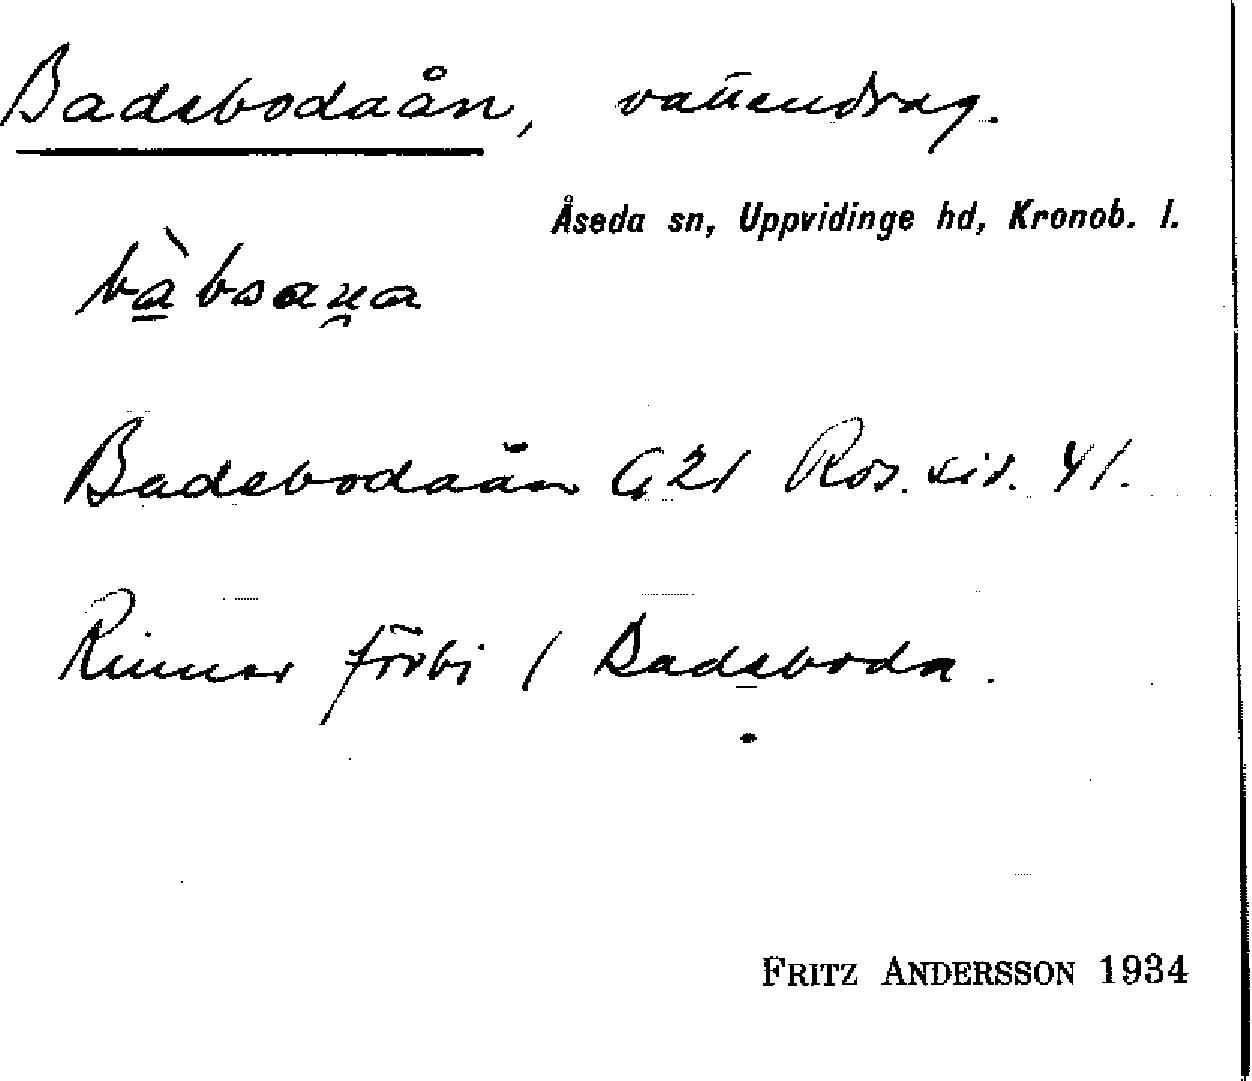 Badebodaån, vattendrag.
Åseda sn, Uppvidinge hd, Kronob. l.
Badebodaån G21 Ros. sid. 41.
Rinner förbi / Badeboda.
FRITZ ANDERSSON 1934